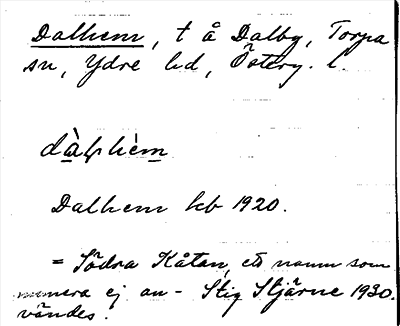 Dalhem, t å Dalby, Torpa
sn, Ydre hd, Österg. l.
dàlhèm
Dalhem kb 1920.
= Södra Kåtan, ett namn som
numera ej an- Stig Stjärne 1930.
vändes.